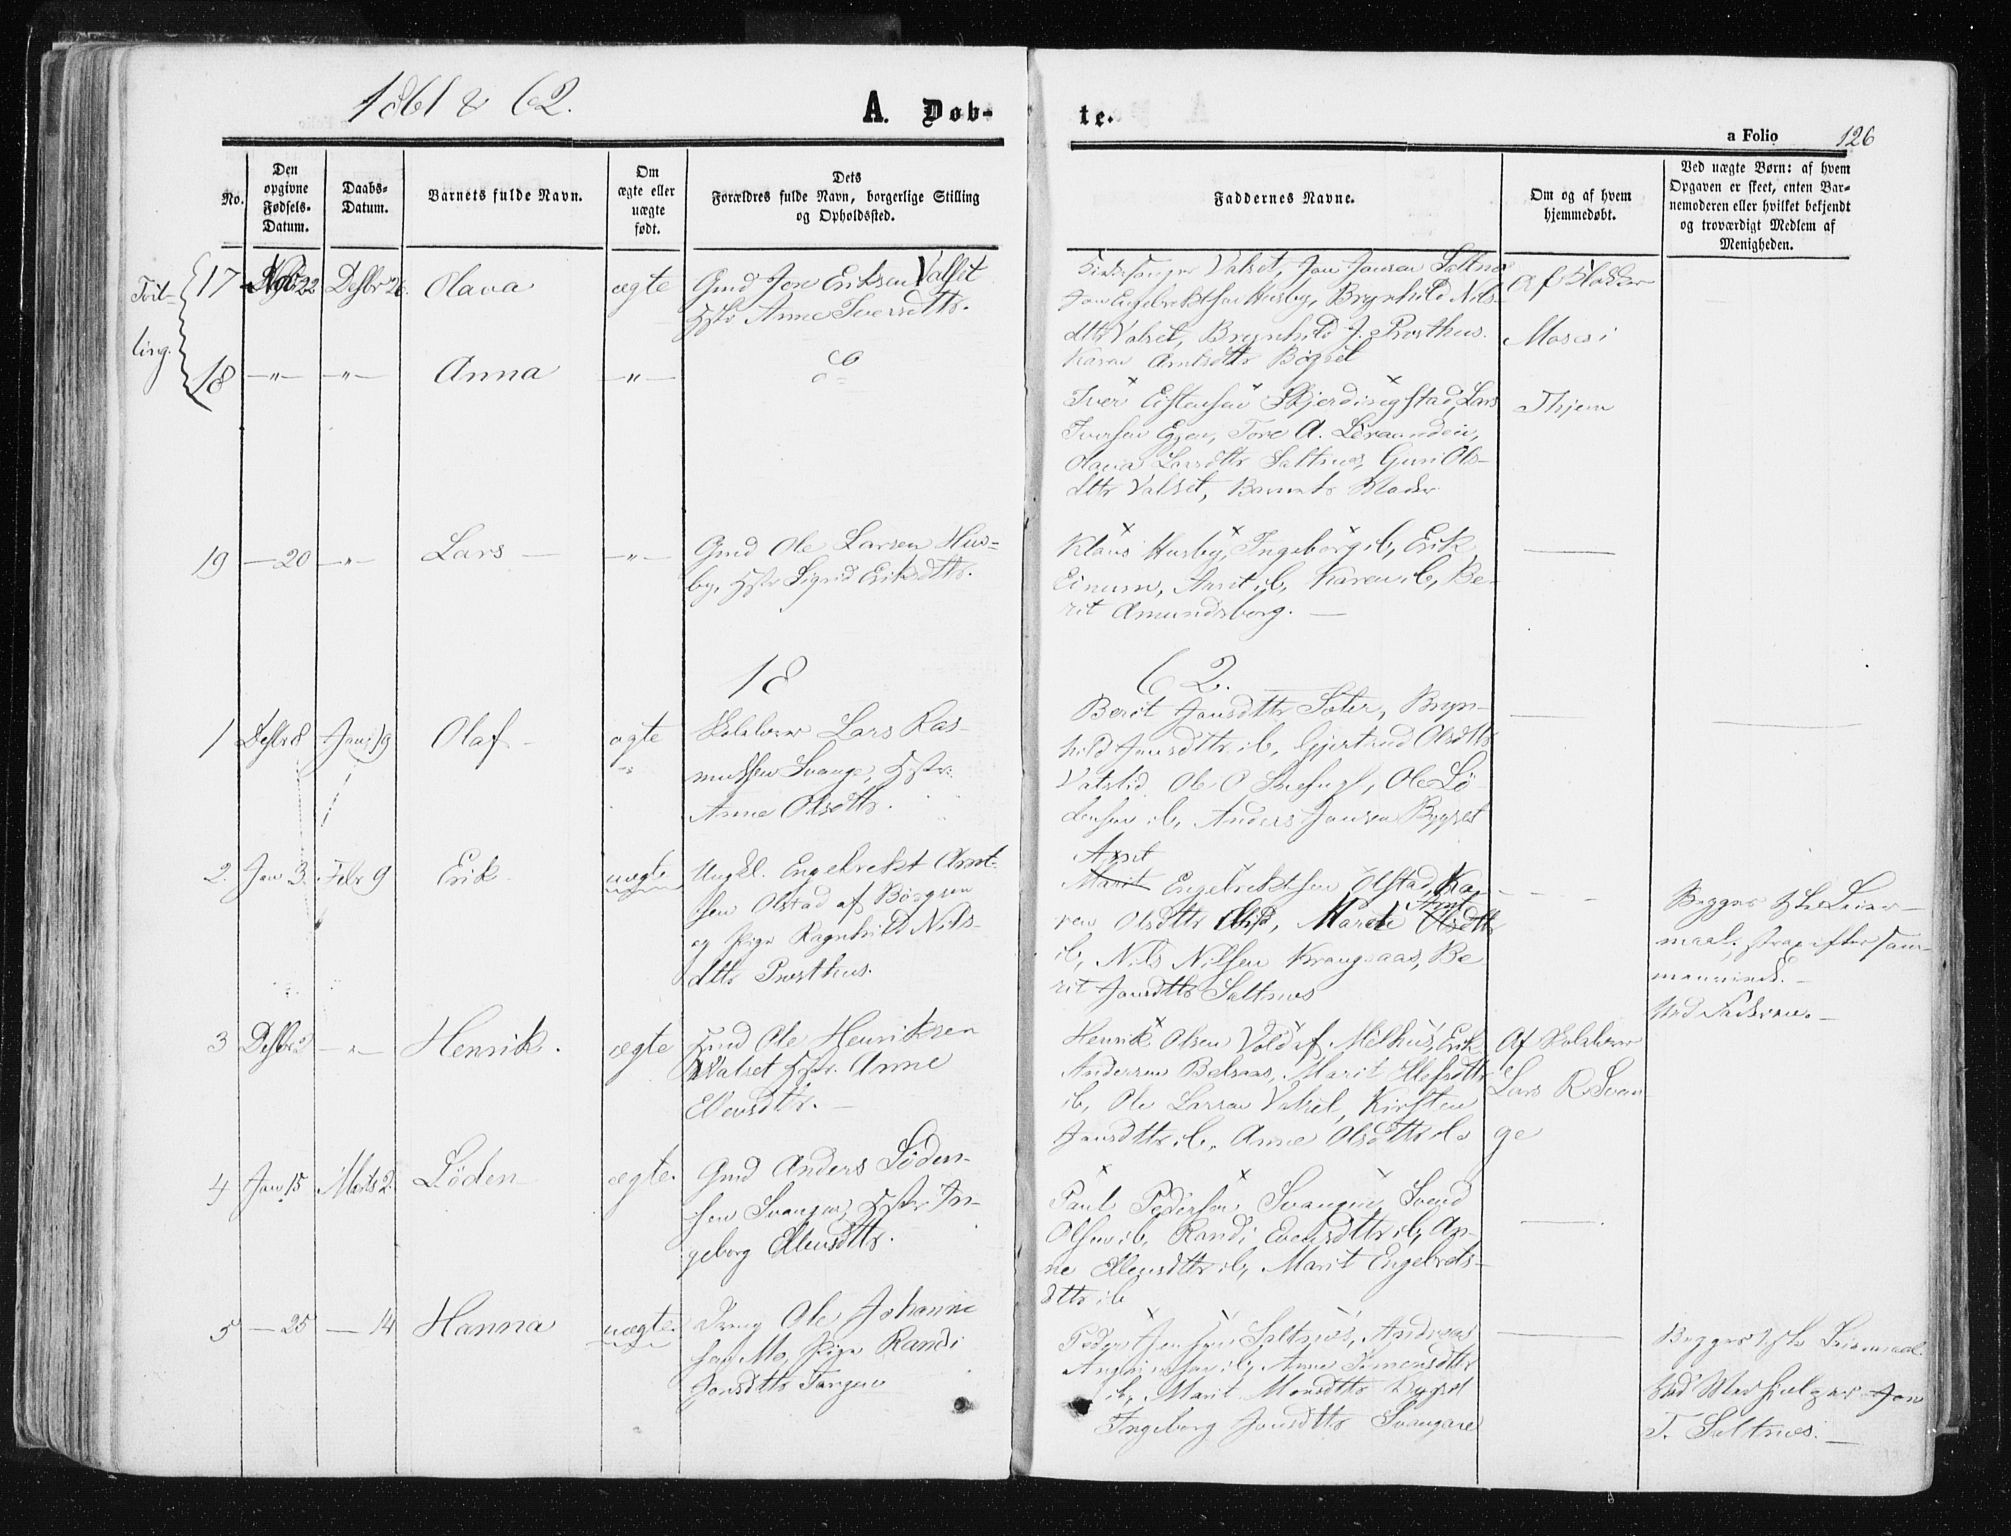 1861 & 62.
A. Døb-
te.
a Folio 126
No.
Den opgivne Fødsels-Datum.
Daabs-Datum.
Barnets fulde Navn.
Om ægte eller uægte født.
Dets Forældres fulde Navn, borgerlige Stilling og Opholdssted.
Faddernes Navne.
Om og af hvem hjemmedøbt.
Ved uægte Børn: af hvem Opgaven er skeet, enten Barnemoderen eller hvilket bekjendt og troværdigt Medlem af Menigheden.
Tvil-
ling.
17 22 Desbr 26 Olava ægte Gmd Jon Eriksen Valset
Hstr Anne Iversdttr.
Kirkesanger Valset, Jon Jonsen Saltnes
Jon Engebrektsen Husby, Brynhild Nils-
dttr Valset, Brynhild J. Prosthus.
Karen Arntsdttr Bögset
18 —"— —"— Anna —"—
Iver Estensen Skjerdingstad, Lars
Iversen Egjen, Tore A. Leraanden,
Olava Larsdttr Saltnes, Guri Ols-
dttr Valset, Barnets Moder
19 —20 —"— Lars — —"— Gmd Ole Larsen Hus-
by, Hstr Sigrid Eriksdttr.
Klaus Husby, Ingeborg ib, Erik
Einum, Marit ib, Karen ib, Be-
rit Amundsborg. —
18
62.
1 Desbr 8 Janr 19 Olaf — ægte Skolelærer Lars Ras-
mussen Svange, Hstr:
Anne Olsdttr.
Berit Jonsdttr Sæter, Bryn-
hild Jonsdttr ib, Gjertrud Olsdttr
Valslid, Ole O, Ole Lö-
densen ib, Anders Jonsen Bygset
2. Jan 3. Febr 9 Erik uægte Ungkl. Engebrekt Arnt-
sen Olstad af Börgsen
og Pige Ragnhild Nils-
dttr Prosthus.
Arnt
Marit Engebrektsen Olstad, Ka-
ren Olsdttr ibid, Marit Arnt Olsdttr
ib, Nils Nilsen Krangsaas, Be-
rit Jonsdttr Saltnes
Begges 1ste Leier-
maal, strax efter Sam-
menvirels. —
Ved Faderen. —
3 Desbr 2 —"— Henrik. ægte Gmd Ole Henriksen
Valset Hstr. Anne
Ellensdtr. —
Henrik Olsen Vold af Melhus, Erik
Andersen Belsaas, Marit Ellefsdttr
ib, Ole Larsen Valset, Kirsten
Jonsdttr ib, Anne Olsdttr ib
Af Skolelærer
Lars R. Svan-
ge
4 Jan 15 Marts 2. Löden ægte. Gmd Anders Löden-
sen Svangen, Hstr In-
geborg Ellensdttr.
Paul Pedersen Svangen, Svend
Olsen ib, Randi Evensdttr ib, An-
ne Ellensdttr ib, Marit Engebrets-
dttr ib
5 —25 —14 Hanna uægte. Dreng Ole Johanne-
sen Mo, Pige Randi
Jonsdttr Tangen
Peder Jonsen Saltnes, Andreas
ib, Anne Simensdttr
ib, Marit Monsdttr Bygset
Ingeborg Jonsdttr Svangare
Begges 1ste Leiermaal
Ved Jon
T. Saltnes. —